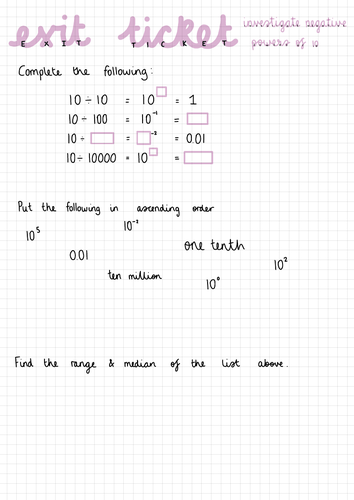 exit ticket
EXIT TICKET
investigate negative
powers of 10
Complete the following:
10 ÷ 10 = 10 = 1
10 ÷ 100 = 10⁻¹ =
10 ÷ = ⁻² = 0.01
10 ÷ 10000 = 10 =
Put the following in ascending order
10⁵
10⁻³
0.01
one tenth
ten million
10⁰
10²
Find the range & median of the list above.